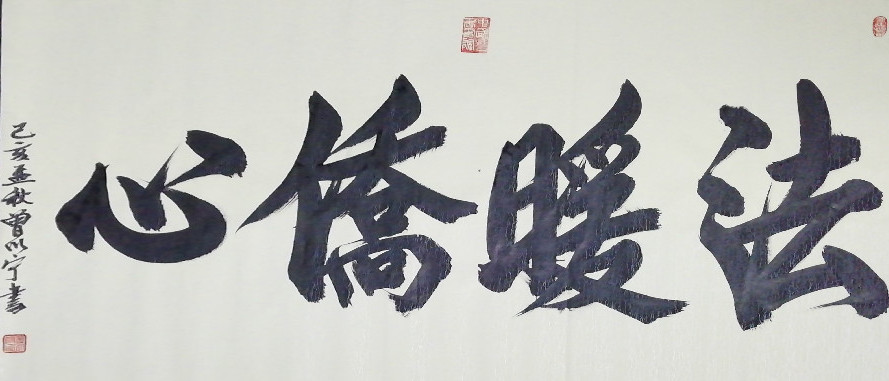 法暖僑心
己亥孟秋曾以宁書